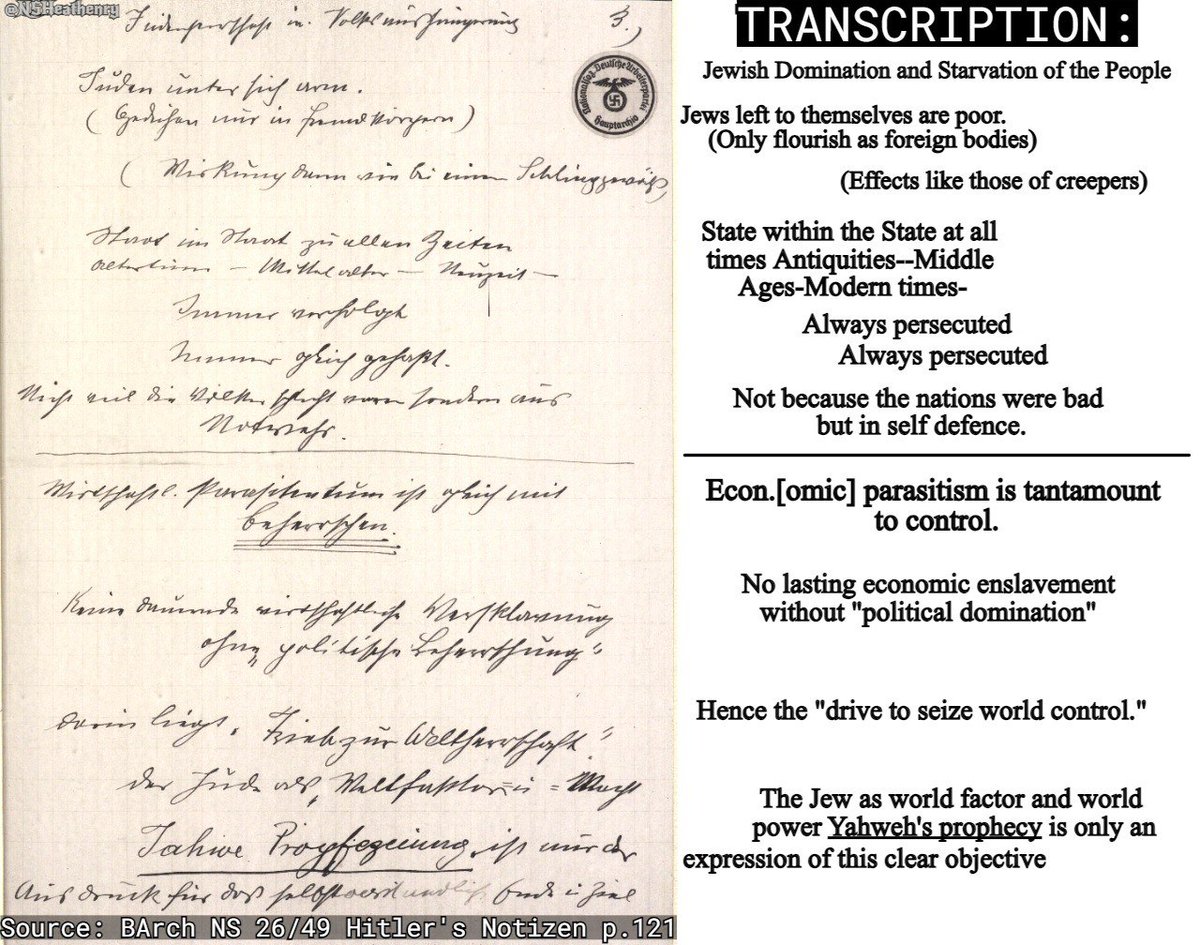 @NSHeathenry
Judenherrschaft u. Volksaushungerung 3.)
Juden unter sich arm.
(Gedeihen nur in Fremdkörpern)
(Wirkung dann wie bei einem Schlinggewächs)
Staat im Staat zu allen Zeiten
Altertum – Mittelalter – Neuzeit –
Immer verfolgt
Immer gleich gehaßt.
Nicht weil die Völker schlecht waren sondern aus
Notwehr.
Wirtschaftl. Parasitentum ist gleich mit
beherrschen.
Keine dauernde wirtschaftliche Versklavung
ohne „politische Beherrschung“
darin liegt „Trieb zur Weltherrschaft“
der Jude als „Weltfaktor = u = Macht
Jahwe ist nur der
Ausdruck für das Ende u Ziel
Deutsche Arbeiterpartei
Hauptarchiv
Source: BArch NS 26/49 Hitler's Notizen p.121
TRANSCRIPTION:
Jewish Domination and Starvation of the People
Jews left to themselves are poor.
(Only flourish as foreign bodies)
(Effects like those of creepers)
State within the State at all
times Antiquities--Middle
Ages-Modern times-
Always persecuted
Always persecuted
Not because the nations were bad
but in self defence.
Econ.[omic] parasitism is tantamount
to control.
No lasting economic enslavement
without "political domination"
Hence the "drive to seize world control."
The Jew as world factor and world
power Yahweh's prophecy is only an
expression of this clear objective